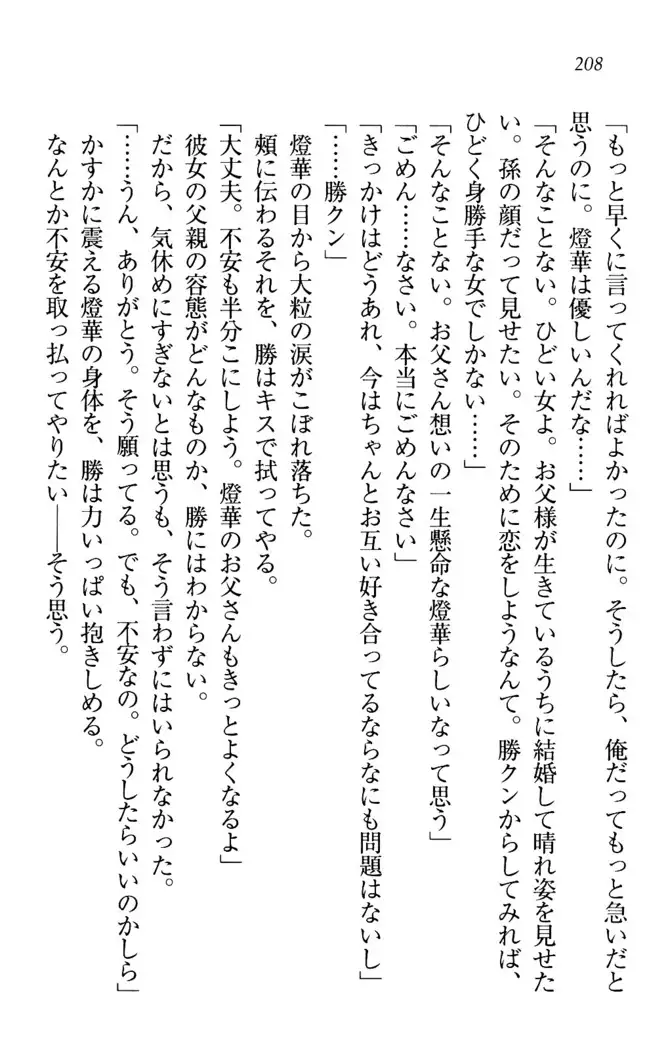 208
「もっと早くに言ってくれればよかったのに。そうしたら、俺だってもっと急いだと
思うのに。燈華は優しいんだな……」
「そんなことない。ひどい女よ。お父様が生きているうちに結婚して晴れ姿を見せた
い。孫の顔だって見せたい。そのために恋をしようなんて。勝クンからしてみれば、
ひどく身勝手な女でしかない……」
「そんなことない。お父さん想いの一生懸命な燈華らしいなって思う」
「ごめん……なさい。本当にごめんなさい」
「きっかけはどうあれ、今はちゃんとお互い好き合ってるならなにも問題はないし」
「……勝クン」
燈華の目から大粒の涙がこぼれ落ちた。
頬に伝わるそれを、勝はキスで拭ってやる。
「大丈夫。不安も半分こにしよう。燈華のお父さんもきっとよくなるよ」
彼女の父親の容態がどんなものか、勝にはわからない。
だから、気休めにすぎないとは思うも、そう言わずにはいられなかった。
「……うん、ありがとう。そう願ってる。でも、不安なの。どうしたらいいのかしら」
かすかに震える燈華の身体を、勝は力いっぱい抱きしめる。
なんとか不安を取っ払ってやりたい――そう思う。